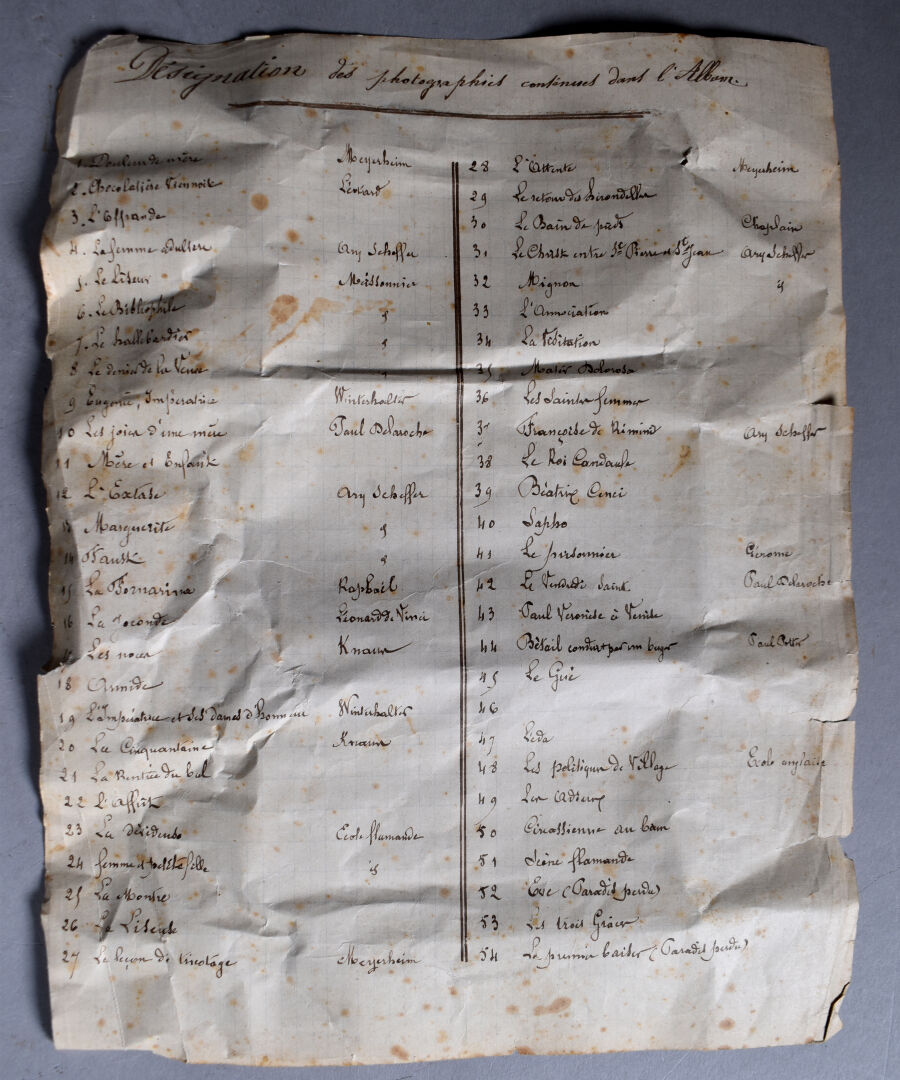 Désignation des photographies contenues dans l'Album.
1. Douleur de mère Meyerheim
2. Chocolatière Viennoise Léotard
3. L'Offrande
4. La femme adultère Ary Scheffer
5. Le Liseur Meissonnier
6. Le Bibliophile "
7. Le hallebardier "
8 Le denier de la Veuve "
9 Eugénie, Impératrice Winterhalter
10 Les joies d'une mère Paul Delaroche
11 Mère et Enfants
12 L'Extase Ary Scheffer
13 Marguerite "
14 Faust "
15 La Fornarina Raphaël
16 La Joconde Léonard de Vinci
17 Les noces Knaus
18 Armide
19 L'Impératrice et ses dames d'honneur Winterhalter
20 La Cinquantaine Knaus
21 La Rentrée du bal
22 L'Affût
23 La Dévideuse Ecole flamande
24 femme et petite fille "
25 La Montre
26 La Liseuse
27 La leçon de tricotage Meyerheim
28 L'Attente Meyerheim
29 Le retour des hirondelles
30 Le Bain de pieds Chaplain
31 Le Christ entre St Pierre et St Jean Ary Scheffer
32 Mignon "
33 L'Annociation
34 La Visitation
35 Mater Dolorosa
36 Les Saintes femmes
37 Françoise de Rimini Ary Scheffer
38 Le Roi Candaule
39 Béatrix Cenci
40 Sapho
41 Le prisonnier Gérome
42 Le Vendredi Saint Paul Delaroche
43 Paul Veronèse à Venise
44 Bétail conduit par un berger Paul Potter
45 Le Gué
46
47 Léda
48 Les politiques de Village Ecole anglaise
49 Les Adieux
50 Circassienne au bain
51 Scène flamande
52 Eve (Paradis perdu)
53 Les trois Grâces
54 Le premier baiser (Paradis perdu)